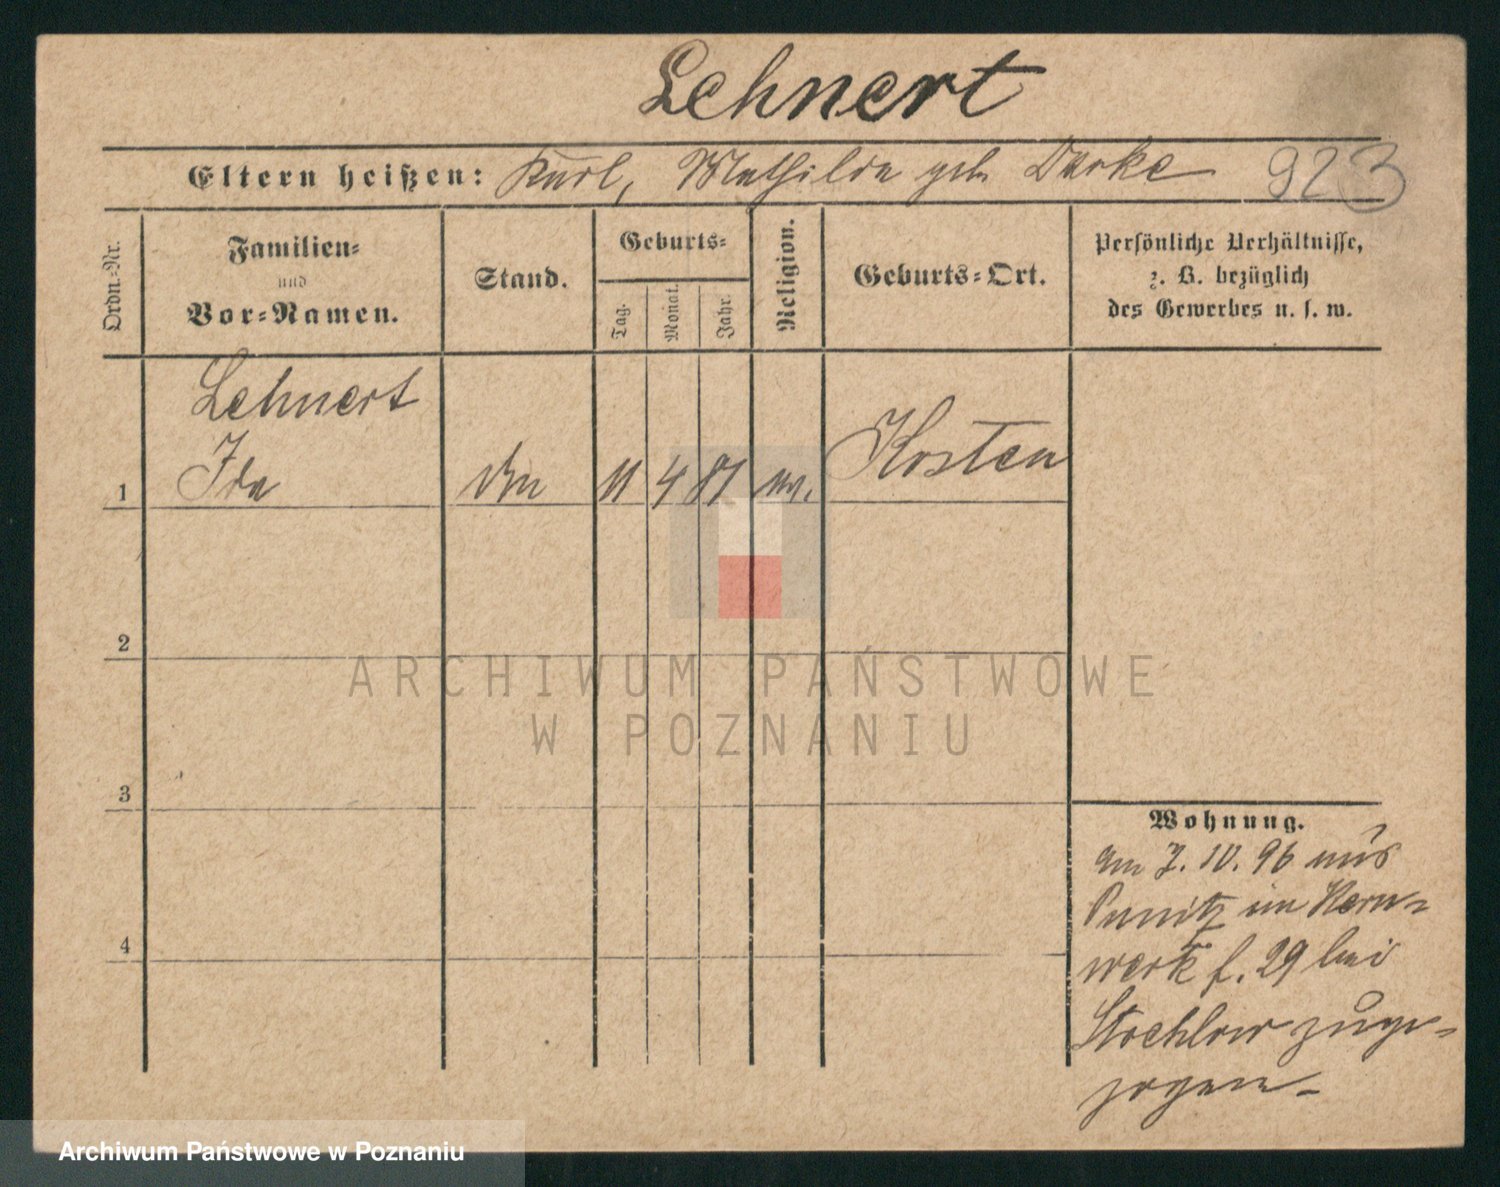 Lehnert
Eltern heißen: Karl, Mathilde geb Darke 923
Ordn.-Nr.
Familien-
und
Vor-Namen.
Stand.
Geburts-
Tag.
Monat.
Jahr.
Religion.
Geburts-Ort.
Persönliche Verhältnisse,
z. B. bezüglich
des Gewerbes u. s. w.
Lehnert
1 Ida 11 4 81 ev. Kosten
2
3
4
Wohnung.
am 7. 10. 96 aus
Punitz im Kern-
werk f. 29 bei
zuge-
zogen
ARCHIWUM PAŃSTWOWE
W POZNANIU
Archiwum Państwowe w Poznaniu